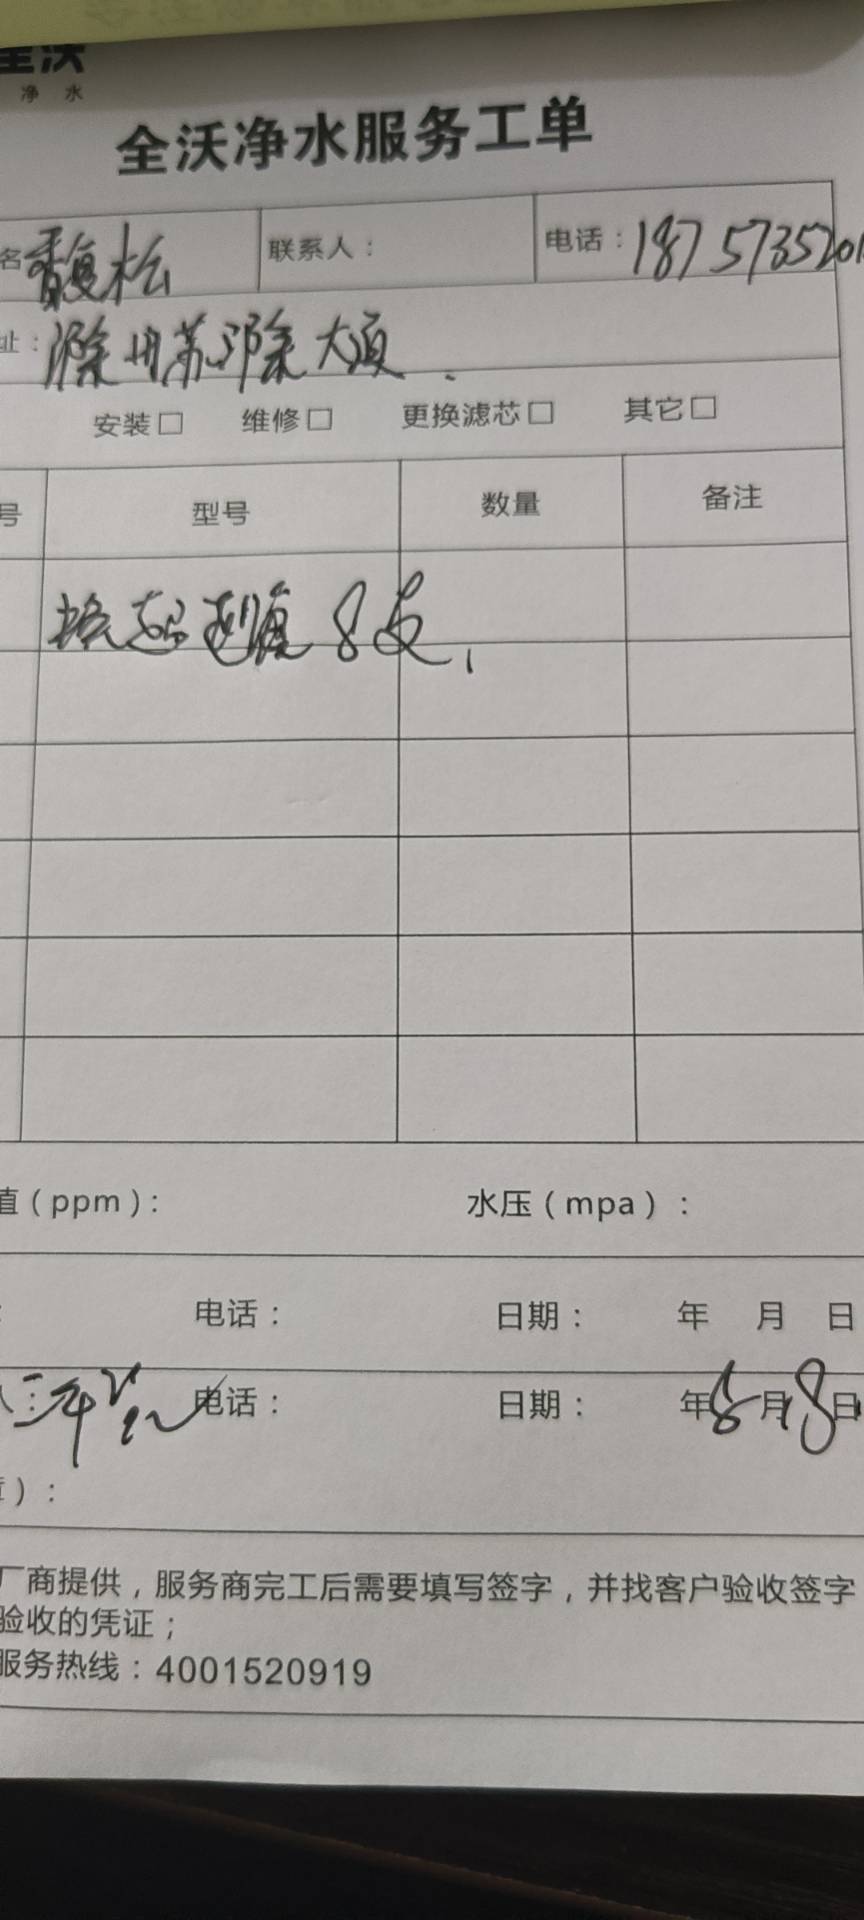 全沃
净 水
全沃净水服务工单
名 馥松 联系人： 电话：1875735201
址：滁州苏滁大道
安装□ 维修□ 更换滤芯□ 其它□
号 型号 数量 备注
换 8支
值（ppm）： 水压（mpa）：
： 电话： 日期： 年 月 日
人： 电话： 日期： 年8月18日
章）：
厂商提供，服务商完工后需要填写签字，并找客户验收签字
验收的凭证；
服务热线：4001520919